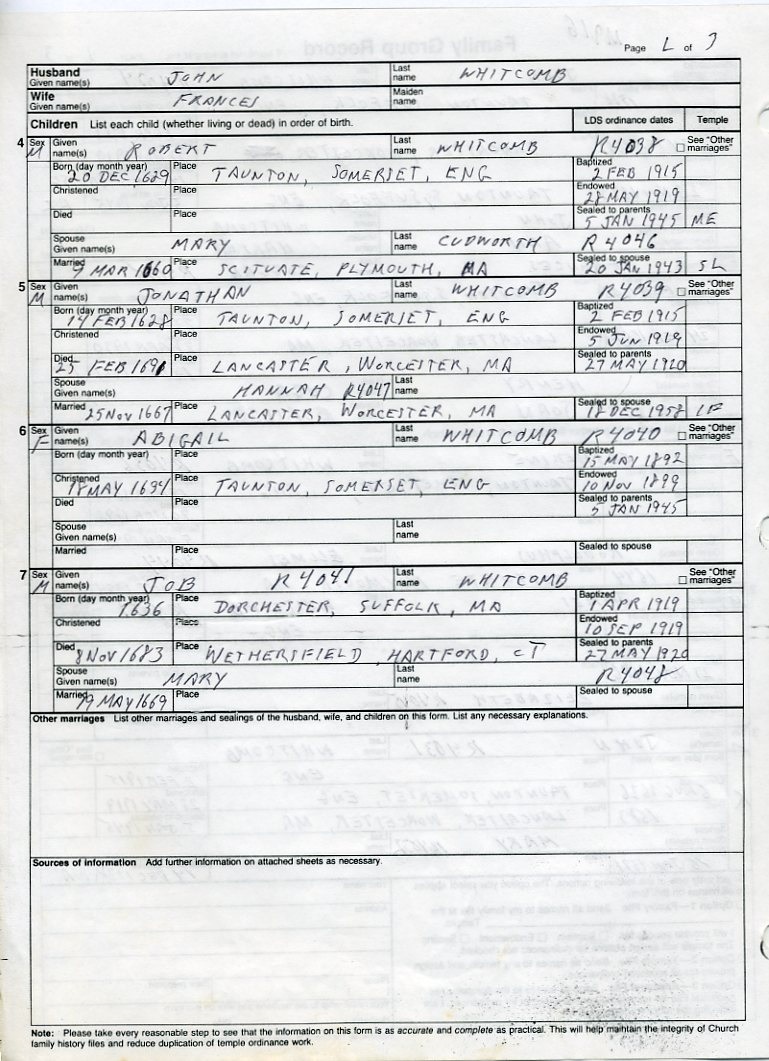 Page 2 of 3
Husband Given name(s) JOHN Last name WHITCOMB
Wife Given name(s) FRANCES Maiden name
Children List each child (whether living or dead) in order of birth. LDS ordinance dates Temple
4 Sex M Given name(s) ROBERT Last name WHITCOMB R4038 See "Other marriages"
Born (day month year) 20 DEC 1629 Place TAUNTON, SOMERSET, ENG Baptized 2 FEB 1915
Christened Place Endowed 28 MAY 1919
Died Place Sealed to parents 5 JAN 1945 ME
Spouse Given name(s) MARY Last name CUDWORTH R4046
Married 9 MAR 1660 Place SCITUATE, PLYMOUTH, MA Sealed to spouse 20 JAN 1943 SL
5 Sex M Given name(s) JONATHAN Last name WHITCOMB R4039 See "Other marriages"
Born (day month year) 14 FEB 1628 Place TAUNTON, SOMERSET, ENG Baptized 2 FEB 1915
Christened Place Endowed 5 JUN 1919
Died 25 FEB 1691 Place LANCASTER, WORCESTER, MA Sealed to parents 27 MAY 1920
Spouse Given name(s) HANNAH R4047 Last name
Married 25 NOV 1667 Place LANCASTER, WORCESTER, MA Sealed to spouse 18 DEC 1958 IF
6 Sex F Given name(s) ABIGAIL Last name WHITCOMB R4040 See "Other marriages"
Born (day month year) Place Baptized 15 MAY 1892
Christened 18 MAY 1634 Place TAUNTON, SOMERSET, ENG Endowed 10 NOV 1899
Died Place Sealed to parents 5 JAN 1945
Spouse Given name(s) Last name
Married Place Sealed to spouse
7 Sex M Given name(s) JOB R4041 Last name WHITCOMB See "Other marriages"
Born (day month year) 1636 Place DORCHESTER, SUFFOLK, MA Baptized 1 APR 1919
Christened Place Endowed 10 SEP 1919
Died 8 NOV 1683 Place WETHERSFIELD, HARTFORD, CT Sealed to parents 27 MAY 1920
Spouse Given name(s) MARY Last name R4048
Married 19 MAY 1669 Place Sealed to spouse
Other marriages List other marriages and sealings of the husband, wife, and children on this form. List any necessary explanations.
Sources of information Add further information on attached sheets as necessary.
Note: Please take every reasonable step to see that the information on this form is as accurate and complete as practical. This will help maintain the integrity of Church
family history files and reduce duplication of temple ordinance work.